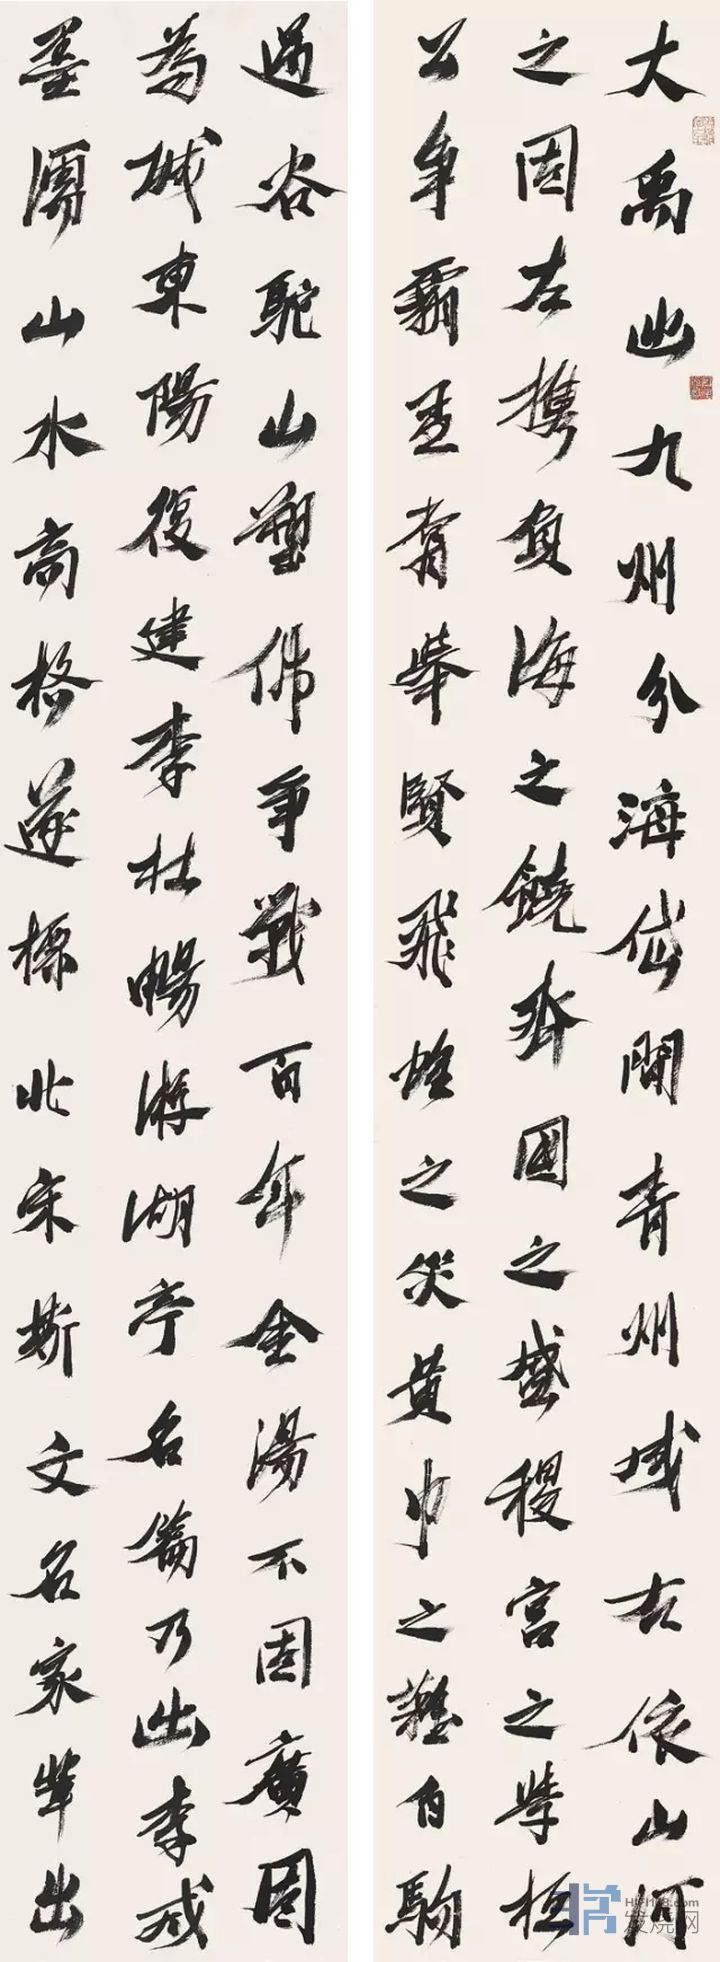 大禹出九州分海岱間青州域右依山河
之固左携負海之饒齊國之盛稷宮之學桓
公爭霸孟嘗舉賢飛蝗之災黃巾之難伯駒
過谷駝山塑佛爭戰百年金湯不固廣固
為城東陽復建李杜暢游湖亭名篇乃出李成
墨濡山水高格遂標北宋斯文名家輩出
HIFI168.com
发烧网